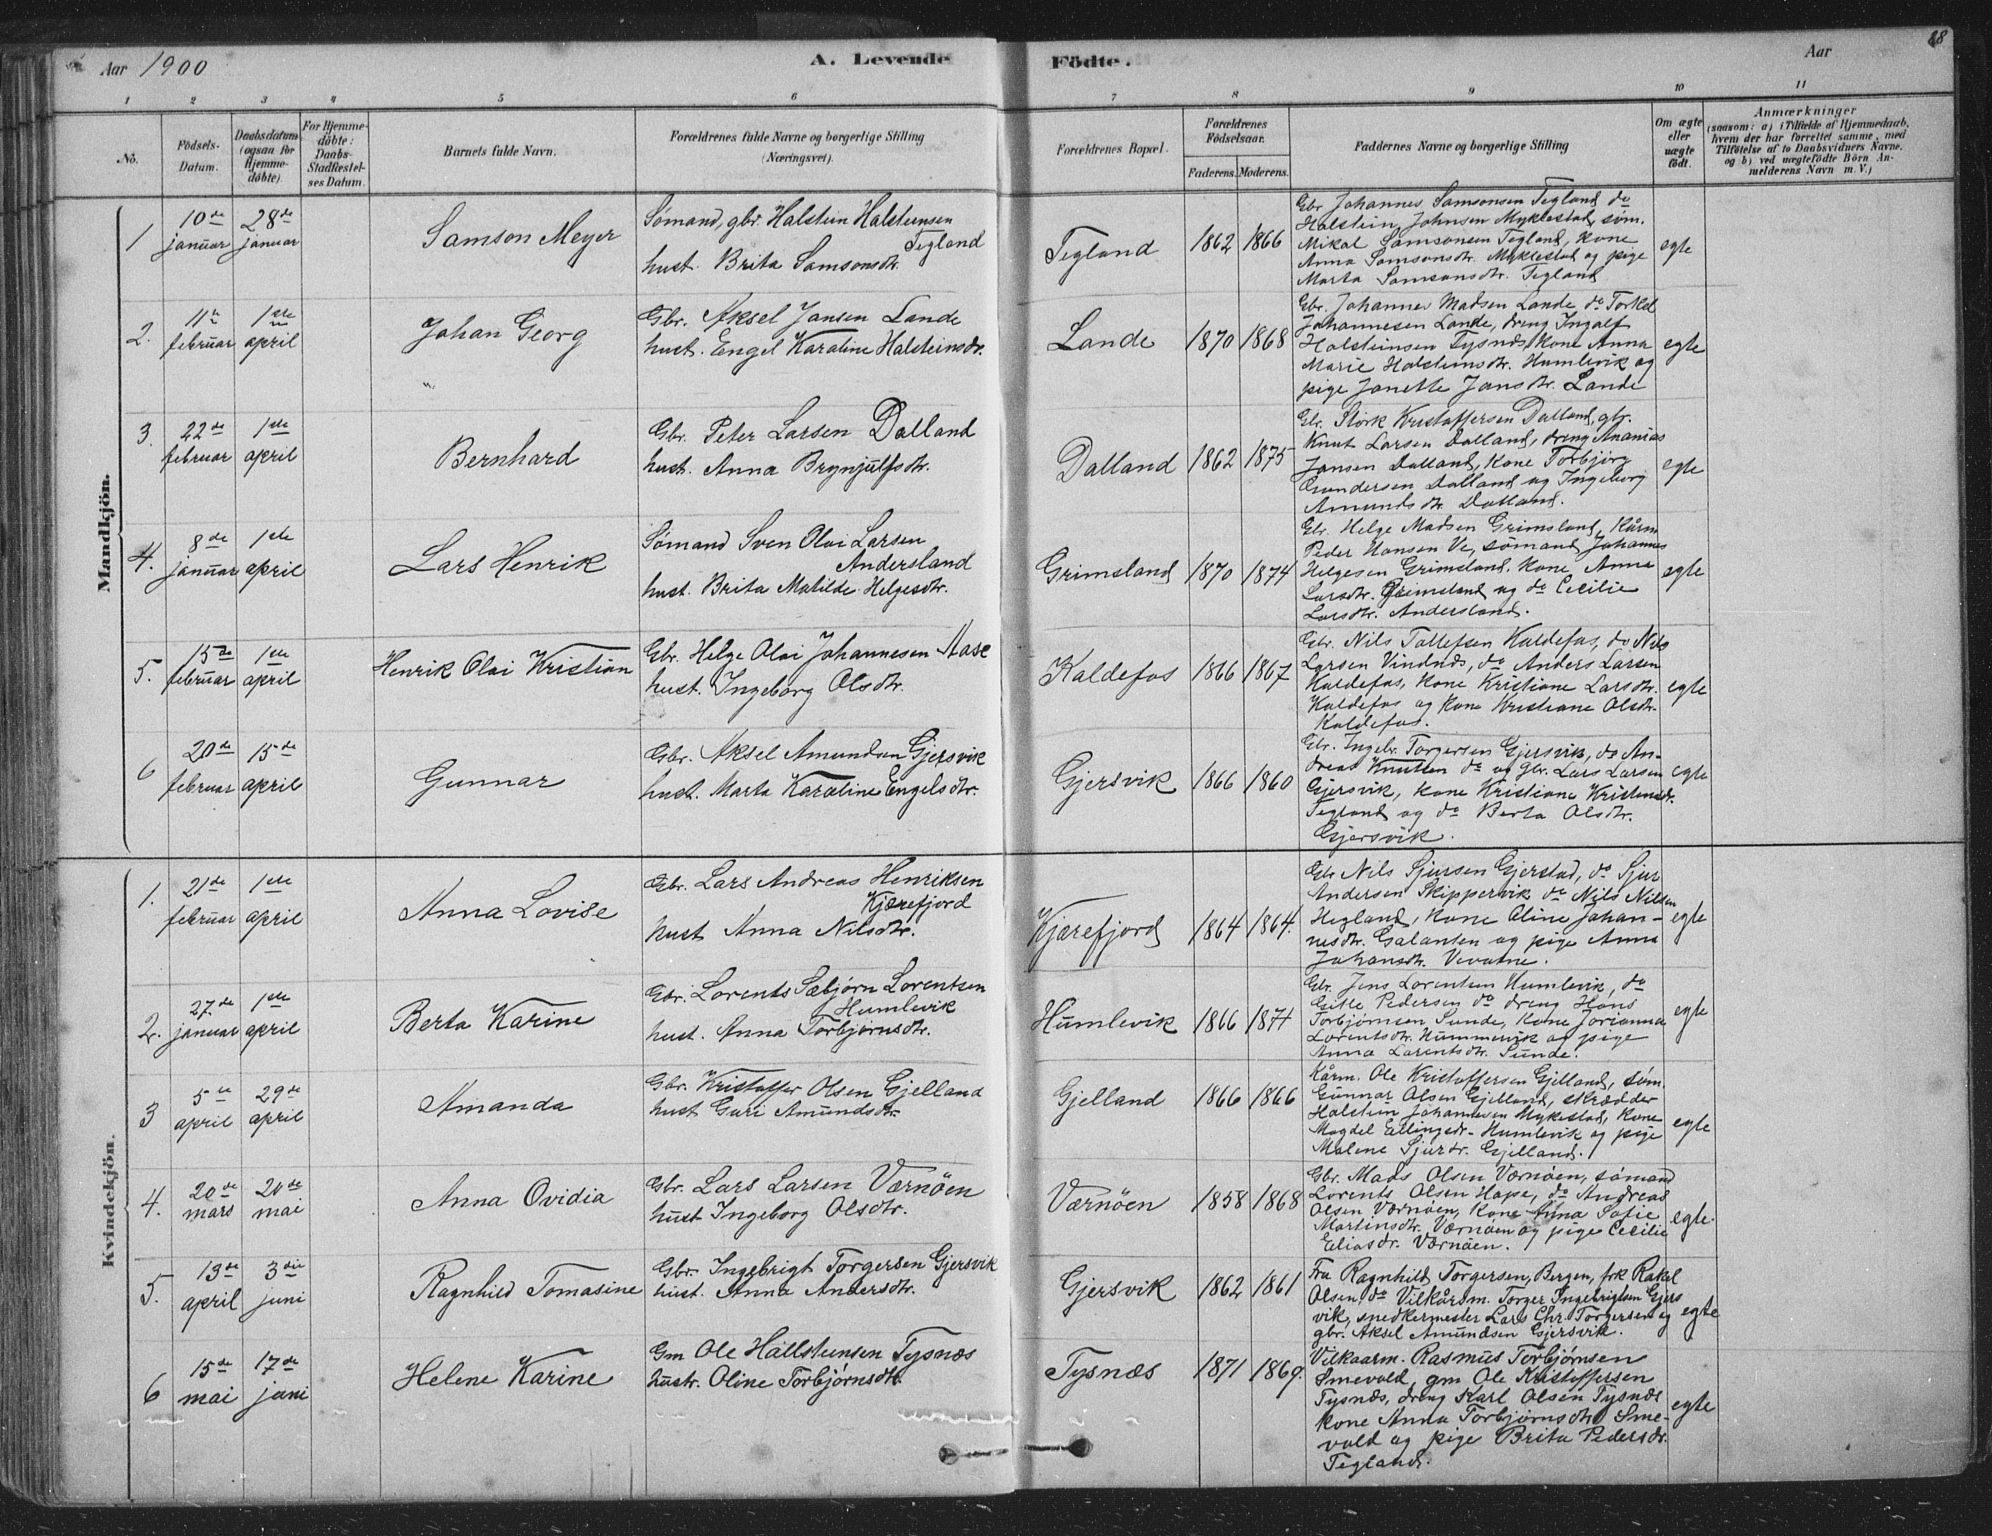 Aar 1900
A. Levende
Födte.
Aar
68
1 2 3 4 5 6 7 8 9 10 11
No.
Födsels-
Datum.
Daabsdatum
(ogsaa for
Hjemme-
døbte)
For Hjemme-
døbte:
Daabs-
Stadfæstel-
ses Datum.
Barnets fulde Navn.
Forældrenes fulde Navne og borgerlige Stilling
(Næringsvei).
Forældrenes Bopæl.
Forældrenes
Födselsaar.
Faderens. Moderens.
Faddernes Navne og borgerlige Stilling
Om ægte
eller
uægte
födt.
Anmærkninger
(saasom: a) i Tilfælde af Hjemmedaab,
hvem der har forrettet samme, med
Tilföielse af to Daabsvidners Navne.
og b) ved uægtefödte Börn An-
melderens Navn m. V.)
Mandkjön.
1
10de
januar
28de
januar
Samson Meyer
Sømand, gbr. Halstein Halsteinsen
Tegland
hust. Brita Samsonsdtr.
Tegland
1862 1866
Gbr. Johannes Samsonsen Tegland do
Halstein Johnsen Myklestad søm.
Mikal Samsonsen Tegland, kone
Anna Samsonsdtr. Myklestad og pige
Marta Samsonsdtr. Tegland
egte
2.
11te
februar
1ste
april
Johan Georg
Gbr. Aksel Jansen Lande
hust. Engel Karoline Halsteinsdr.
Lande
1870 1868
Gbr. Johannes Madsen Lande, do Torkel
Johannesen Lande, dreng Ingolf
Halsteinsen Tysnæs, kone Anna
Marie Halsteinsdtr. Humlevik og
pige Janette Jansdtr. Lande
egte
3.
22de
februar
1ste
april
Bernhard
Gbr. Peter Larsen Dalland
hust. Anna Brynjulfsdtr.
Dalland
1862 1875
Gbr. Størk Kristoffersen Dalland, gbr.
Knut Larsen Dalland, dreng Ananias
Jansen Dalland, kone Torbjørg
Gundersen Dalland og Ingeborg
Amundsdtr. Dalland.
egte
4.
8de
januar
1ste
april
Lars Henrik
Sømand Sven Olai Larsen
Andersland
hust. Brita Matilde Helgesdtr.
Grimsland
1870 1874
Gbr. Helge Madsen Grimsland, Kårm.
Peder Hansen Ve, sømand Johannes
Helgesen Grimsland. kone Anna
Larsdtr. Grimsland og do Cecilie
Larsdtr. Andersland.
egte
5.
15de
februar
1ste
april
Henrik Olai Kristian
Gbr. Helge Olai Johannesen Aase
hust. Ingeborg Olsdtr.
Kaldefos
1866 1867
Gbr. Nils Tollefsen Kaldefos, do Nils
Larsen Vindnæs, do Anders Larsen
Kaldefos, kone Kristiane Larsdtr.
Kaldefos og kone Kristiane Olsdtr.
Kaldefos.
egte
6
20de
februar
15de
april
Gunnar
Gbr. Aksel Amundsen Gjersvik
hust. Marta Karoline Engelsdtr.
Gjersvik
1866 1860
Gbr. Ingebr. Torgersen Gjersvik, do An-
dreas Knutsen do og gbr. Lars Larsen
Gjersvik, kone Kristiane Kristensdr.
Tegland og do Berta Olsdtr.
Gjersvik.
egte
Kvindekjön.
1.
21de
februar
1ste
april
Anna Lovise
Gbr. Lars Andreas Henriksen
Kjærefjord
hust Anna Nilsdtr.
Kjærefjord
1864 1864.
Gbr Nils Sjursen Gjerstad, do Sjur
Andersen Skippervik do Nils Nilsen
Hegland, kone Oline Johan-
nesdtr. Galanten og pige Anna
Johansdtr. Vevatne.
egte
2.
27de
januar
1ste
april
Berta Karine
Gbr. Lorents Sæbjørn Lorentsen
Humlevik
hust. Anna Torbjørnsdtr.
Humlevik
1866 1871
Gbr. Jens Lorentsen Humlevik, do
Gitle Pedersen do dreng Hans
Torbjørnsen Sunde, kone Jorianna
Lorentsdtr. Hummervik og pige
Anna Larentsdtr. Sunde.
egte
3
5te
april
29de
april
Amanda
Gbr. Kristoffer Olsen Gjelland
hust Guri Amundsdtr.
Gjelland
1866 1866
Kårm. Ole Kristoffersen Gjelland, søm.
Gunnar Olsen Gjelland, skrædder
Halstein Johannesen Mykestad, kone
Magdel Ellingsdr. Humlevik og pige
Malene Sjurdr. Gjelland.
egte
4.
20de
mars
20de
mai
Anna Ovidia
Gbr. Lars Larsen Værnøen
hust Ingeborg Olsdtr.
Værnøen
1858 1868
Gbr. Mads Olsen Værnøen, sømand
Lorents Olsen Hope, do Andreas
Olsen Værnøen, kone Anna Sofie
Martinsdtr. Værnøen og pige Cecilie
Eliasdr. Værnøen.
egte.
5.
13de
april
3die
juni
Ragnhild Tomasine
Gbr. Ingebrigt Torgersen Gjersvik
hust. Anna Andersdtr.
Gjersvik
1862 1861
Fru Ragnhild Torgersen, Bergen, frk Rakel
Olsen, do Vilkårsm. Torger Ingebrigtsen Gjers
vik, snedkermester Lars Chr. Torgersen og
gbr. Aksel Amundsen Gjersvik.
egte
6
15de
mai
17de
juni
Helene Karine
Gm Ole Hallsteinsen Tysnæs
hustr. Oline Torbjørnsdtr.
Tysnæs
1871 1869.
Vilkaarm. Rasmus Torbjørnsen
Smevold, gm Ole Kristoffersen
Tysnæs, dreng Karl Olsen Tysnæs
kone Anna Torbjørnsdtr Sme-
vold og pige Brita Pedersdr.
Tegland.
egte